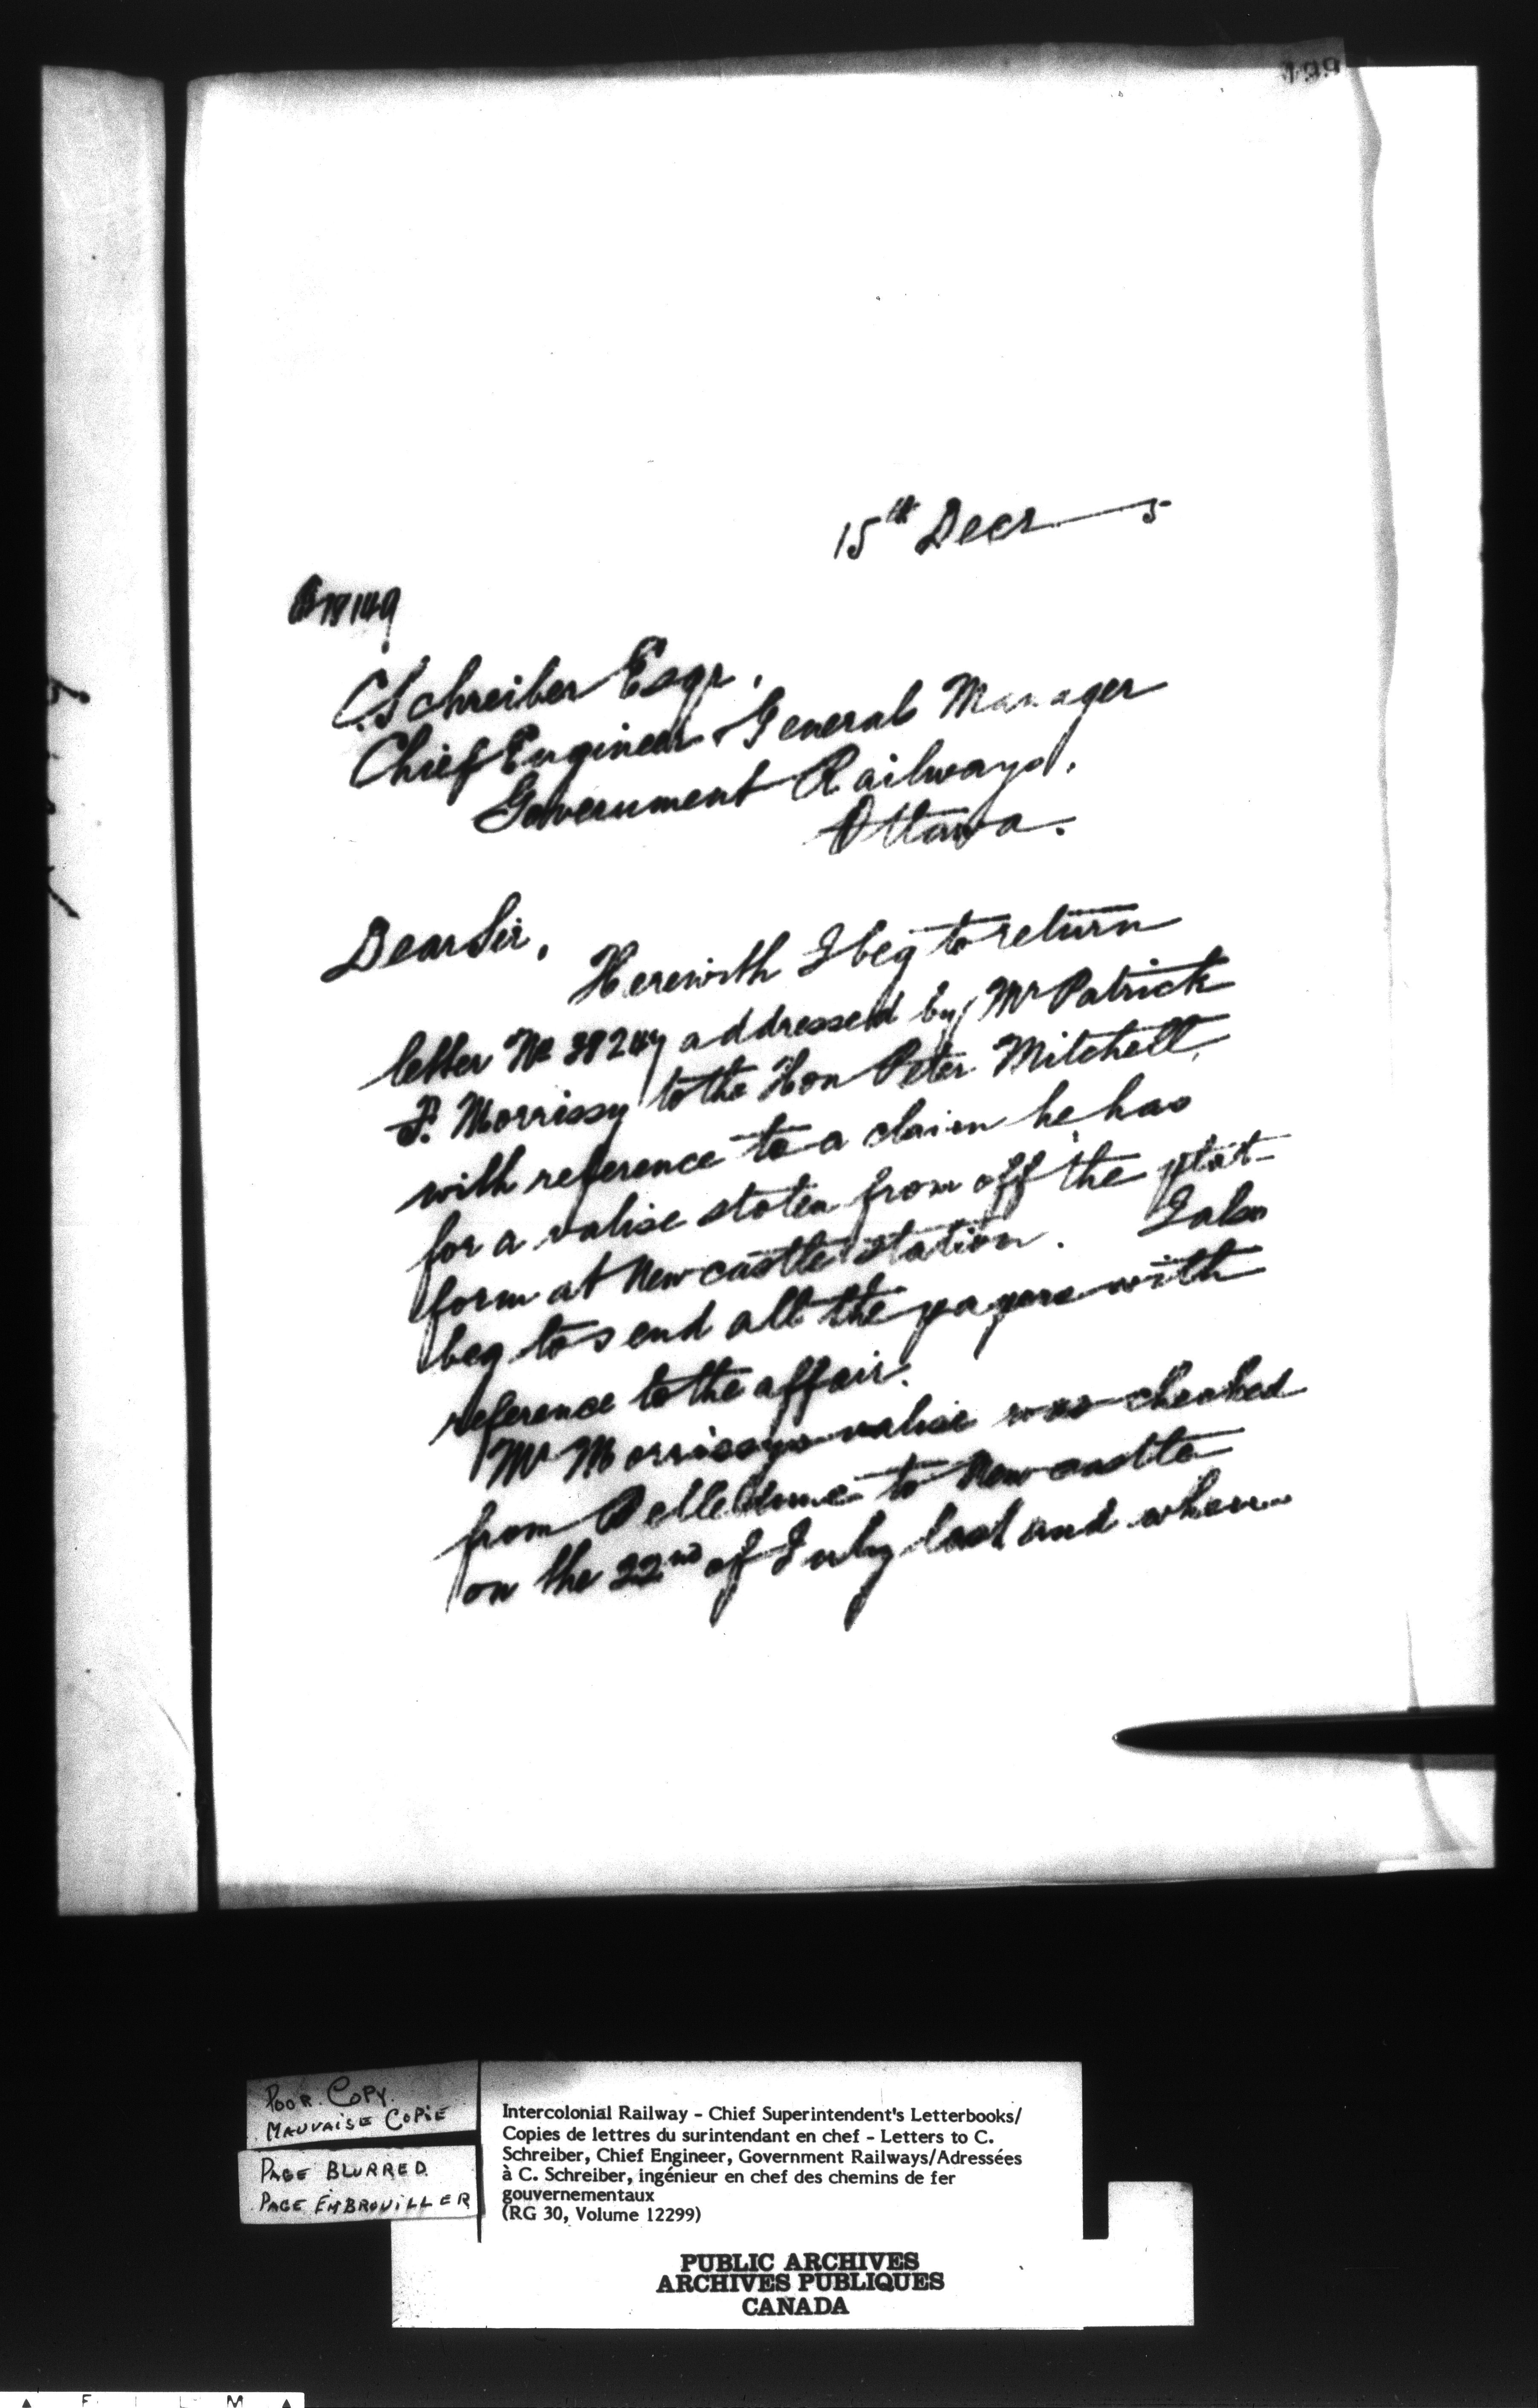 199
15th Decr 5
C. Schreiber Esqr.
Chief Engineer & General Manager
Government Railways,
Ottawa.
Dear Sir,
Herewith I beg to return
letter No addressed by Mr Patrick
P. Morrissy to the Hon Peter Mitchell,
with reference to a claim he has
for a valise stolen from off the plat-
form at Newcastle Station. I also
beg to send all the papers with
reference to the affair.
Mr Morrissys valise was checked
from Belledune to Newcastle
on the 22nd of July last and when
POOR COPY.
MAUVAISE COPIE
PAGE BLURRED
PAGE EMBROUILLER
Intercolonial Railway - Chief Superintendent's Letterbooks/
Copies de lettres du surintendant en chef - Letters to C.
Schreiber, Chief Engineer, Government Railways/Adressées
à C. Schreiber, ingénieur en chef des chemins de fer
gouvernementaux
(RG 30, Volume 12299)
PUBLIC ARCHIVES
ARCHIVES PUBLIQUES
CANADA